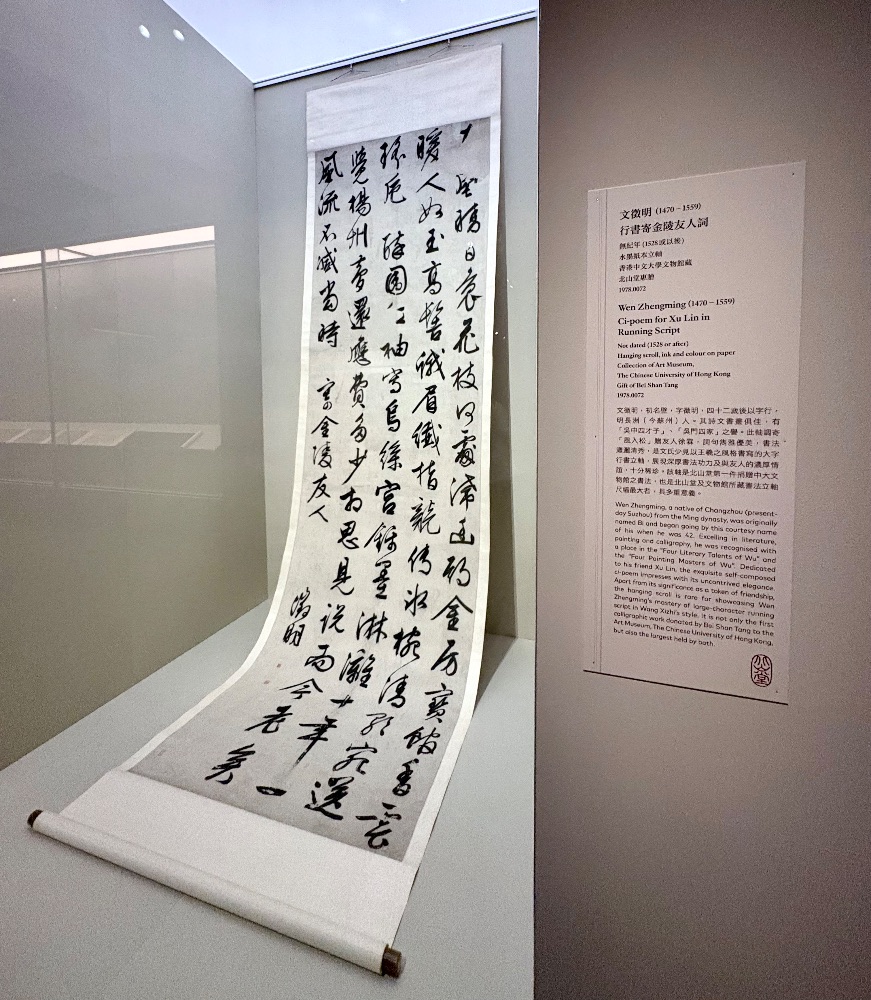 十 日 花枝何處 金 寶馥香雲
暖人如玉高髻蛾眉纖指 傳冰椀清歌宛送
瑤巵 醉圍紅袖寫烏絲宮錦墨淋灕十年一
覺楊州夢還應費多少相思見說而今老矣
風流不減當時 寄金陵友人
徵明
文徵明 (1470－1559)
行書寄金陵友人詞
無紀年 (1528 或以後)
水墨紙本立軸
香港中文大學文物館藏
北山堂惠贈
1978.0072
Wen Zhengming (1470－1559)
Ci-poem for Xu Lin in
Running Script
Not dated (1528 or after)
Hanging scroll, ink and colour on paper
Collection of Art Museum,
The Chinese University of Hong Kong
Gift of Bei Shan Tang
1978.0072
文徵明，初名壁，字徵明，四十二歲後以字行，
明長洲（今蘇州）人。其詩文書畫俱佳，有
「吳中四才子」、「吳門四家」之譽。此軸調寄
「風入松」贈友人徐霖，詞句雋雅優美，書法
遒麗清秀，是文氏少見以王羲之風格書寫的大字
行書立軸，展現深厚書法功力及與友人的濃厚情
誼，十分稀珍。該軸是北山堂第一件捐贈中大文
物館之書法，也是北山堂及文物館所藏書法立軸
尺幅最大者，具多重意義。
Wen Zhengming, a native of Changzhou (present-
day Suzhou) from the Ming dynasty, was originally
named Bi and began going by this courtesy name
of his when he was 42. Excelling in literature,
painting and calligraphy, he was recognised with
a place in the "Four Literary Talents of Wu" and
the "Four Painting Masters of Wu". Dedicated
to his friend Xu Lin, the exquisite self-composed
ci-poem impresses with its uncontrived elegance.
Apart from its significance as a token of friendship,
the hanging scroll is rare for showcasing Wen
Zhengming's mastery of large-character running
script in Wang Xizhi's style. It is not only the first
calligraphic work donated by Bei Shan Tang to the
Art Museum, The Chinese University of Hong Kong,
but also the largest held by both.